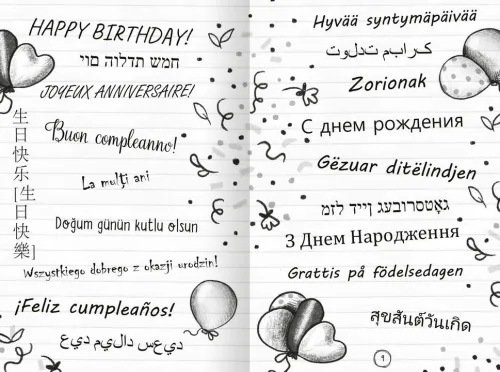 HAPPY BIRTHDAY!
שמח הולדת יום
JOYEUX ANNIVERSAIRE!
生日快乐[生日快樂]
Buon compleanno!
La mulți ani
Doğum günün kutlu olsun
Wszystkiego dobrego z okazji urodzin!
¡Feliz cumpleaños!
ديعس داليم ديع
Hyvää syntymäpäivää
کرابم تدلوت
Zorionak
С днем рождения
Gëzuar ditëlindjen
גאָטסרובעג ןייד לזמ
З Днем Народження
Grattis på födelsedagen
สุขสันต์วันเกิด
1